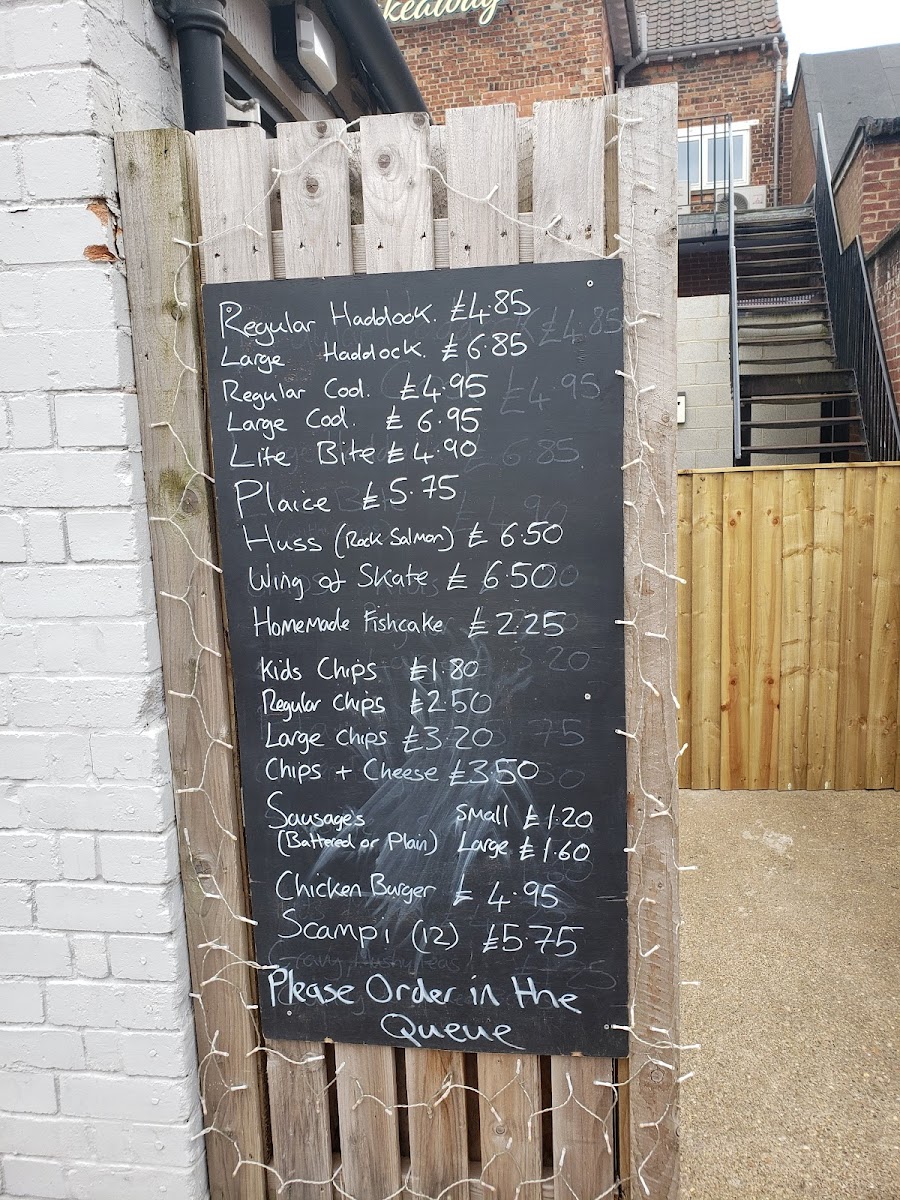 Regular Haddock. £4.85
Large Haddock. £6.85
Regular Cod. £4.95
Large Cod. £6.95
Lite Bite £4.90
Plaice £5.75
Huss (Rock Salmon) £6.50
Wing of Skate £6.50
Homemade Fishcake £2.25
Kids Chips £1.80
Regular chips £2.50
Large chips £3.20
Chips + Cheese £3.50
Sausages Small £1.20
(Battered or Plain) Large £1.60
Chicken Burger £4.95
Scampi (12) £5.75
Please Order in the
Queue